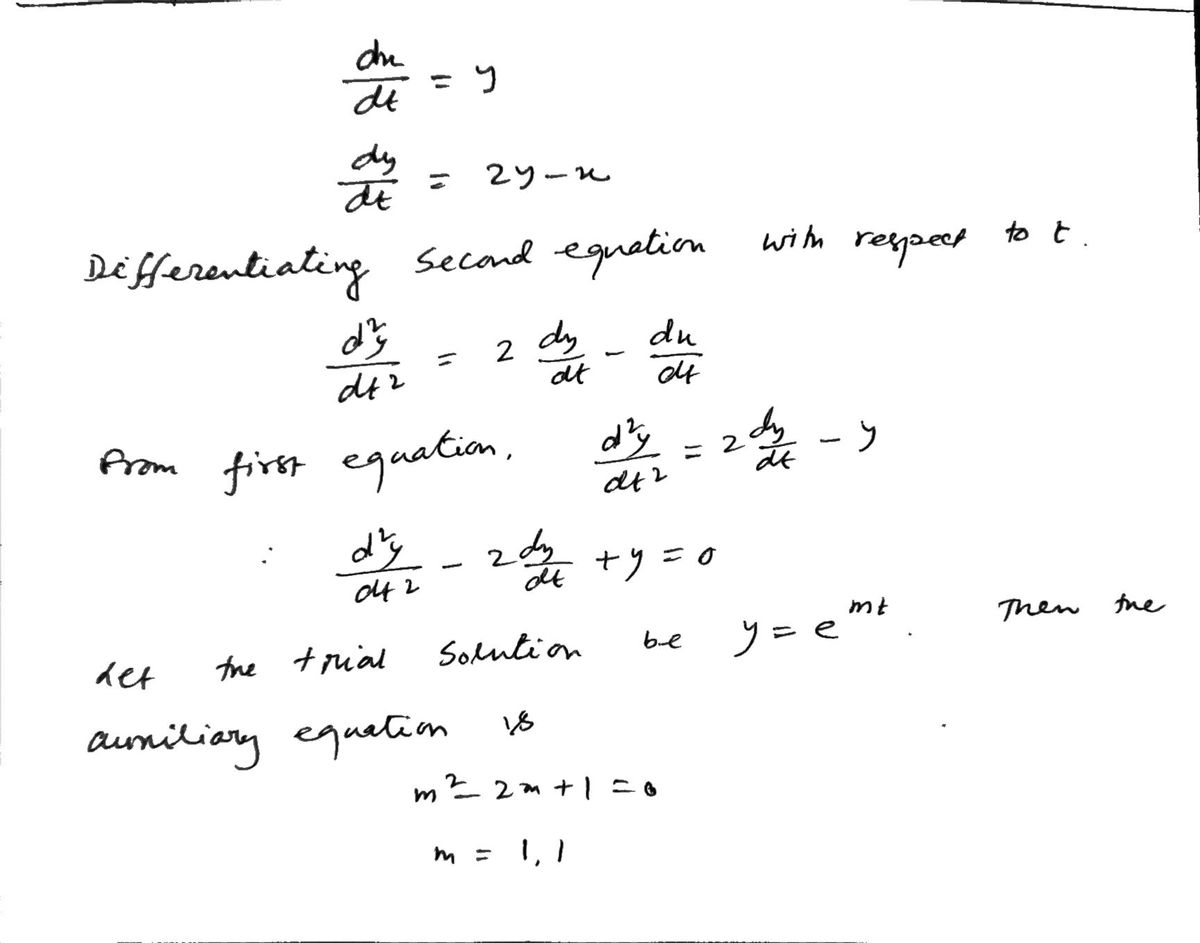 dx/dt = y
dy/dt = 2y - x
Differentiating second equation with respect to t.
d²y/dt² = 2 dy/dt - dx/dt
From first equation, d²y/dt² = 2 dy/dt - y
∴ d²y/dt² - 2 dy/dt + y = 0
Let the trial solution be y = e^mt. Then the
auxiliary equation is
m² - 2m + 1 = 0
m = 1, 1